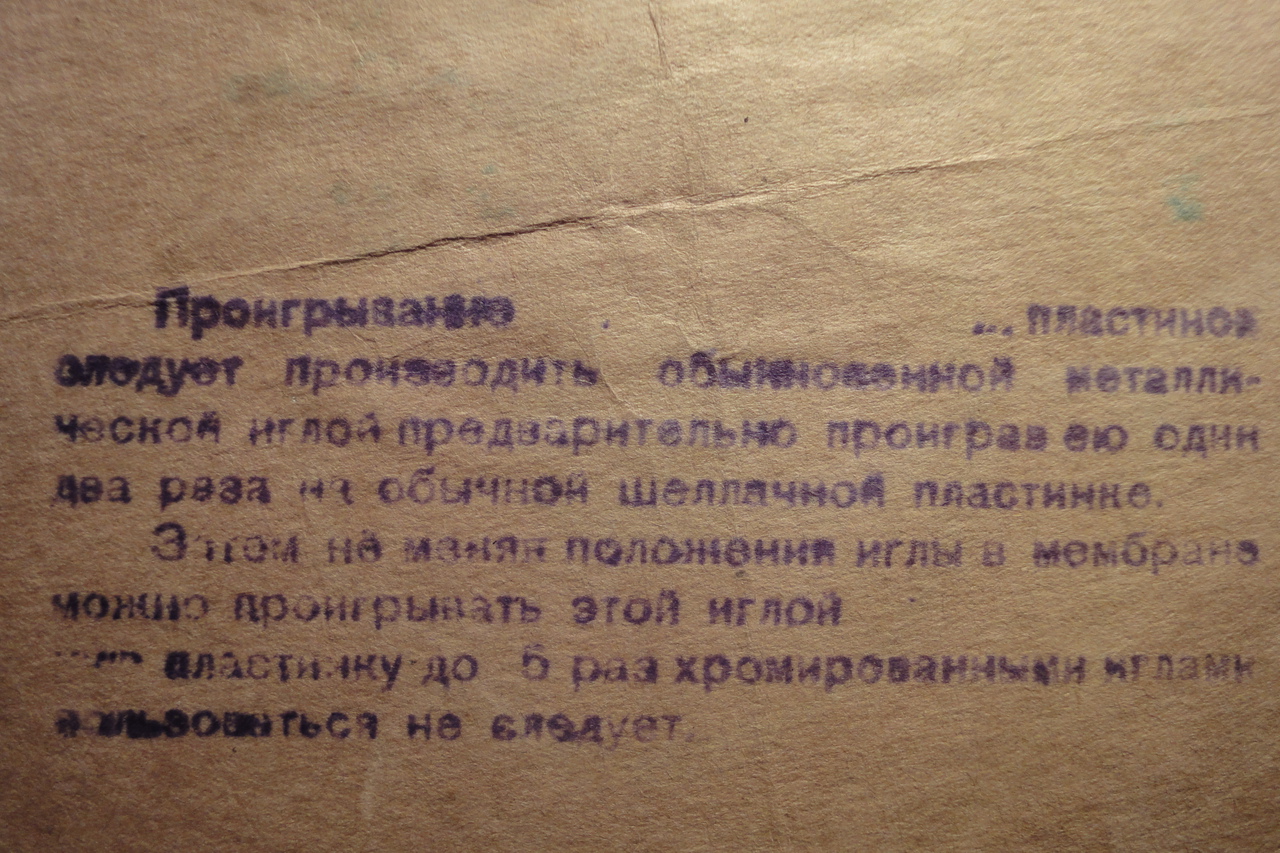 Проигрывание ... пластинок
следует производить обыкновенной металли-
ческой иглой предварительно проиграв ею один
два раза на обычной шеллачной пластинке.
Затем не меняя положения иглы в мембране
можно проигрывать этой иглой
пластинку до 5 раз хромированными иглами
пользоваться не следует.